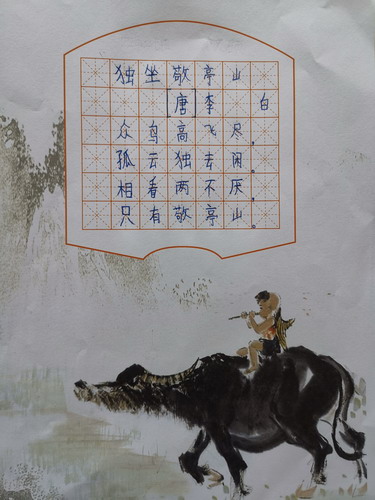 独坐敬亭山
[唐]李白
众鸟高飞尽，
孤云独去闲。
相看两不厌，
只有敬亭山。